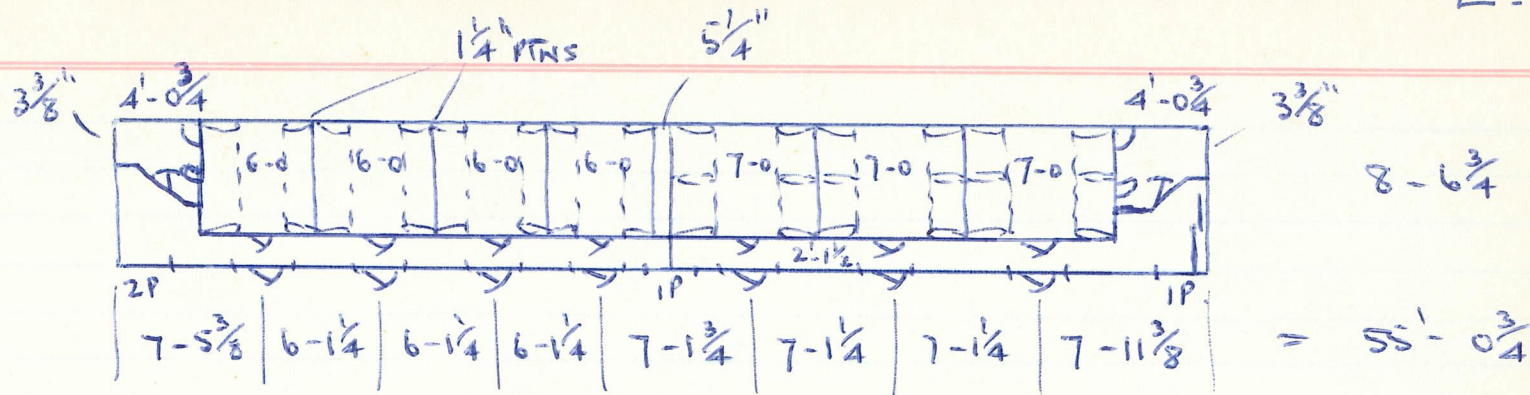 1 1/4" PTNS 5 1/4"
3 3/8" 4'-0 3/4 4'-0 3/4 3 3/8"
6-0 6-0 6-0 6-0 7-0 7-0 7-0 8-6 3/4
2'-1 1/2
2P 1P 1P
7-5 3/8 6-1 1/4 6-1 1/4 6-1 1/4 7-1 3/4 7-1 1/4 7-1 1/4 7-11 3/8 = 55'-0 3/4